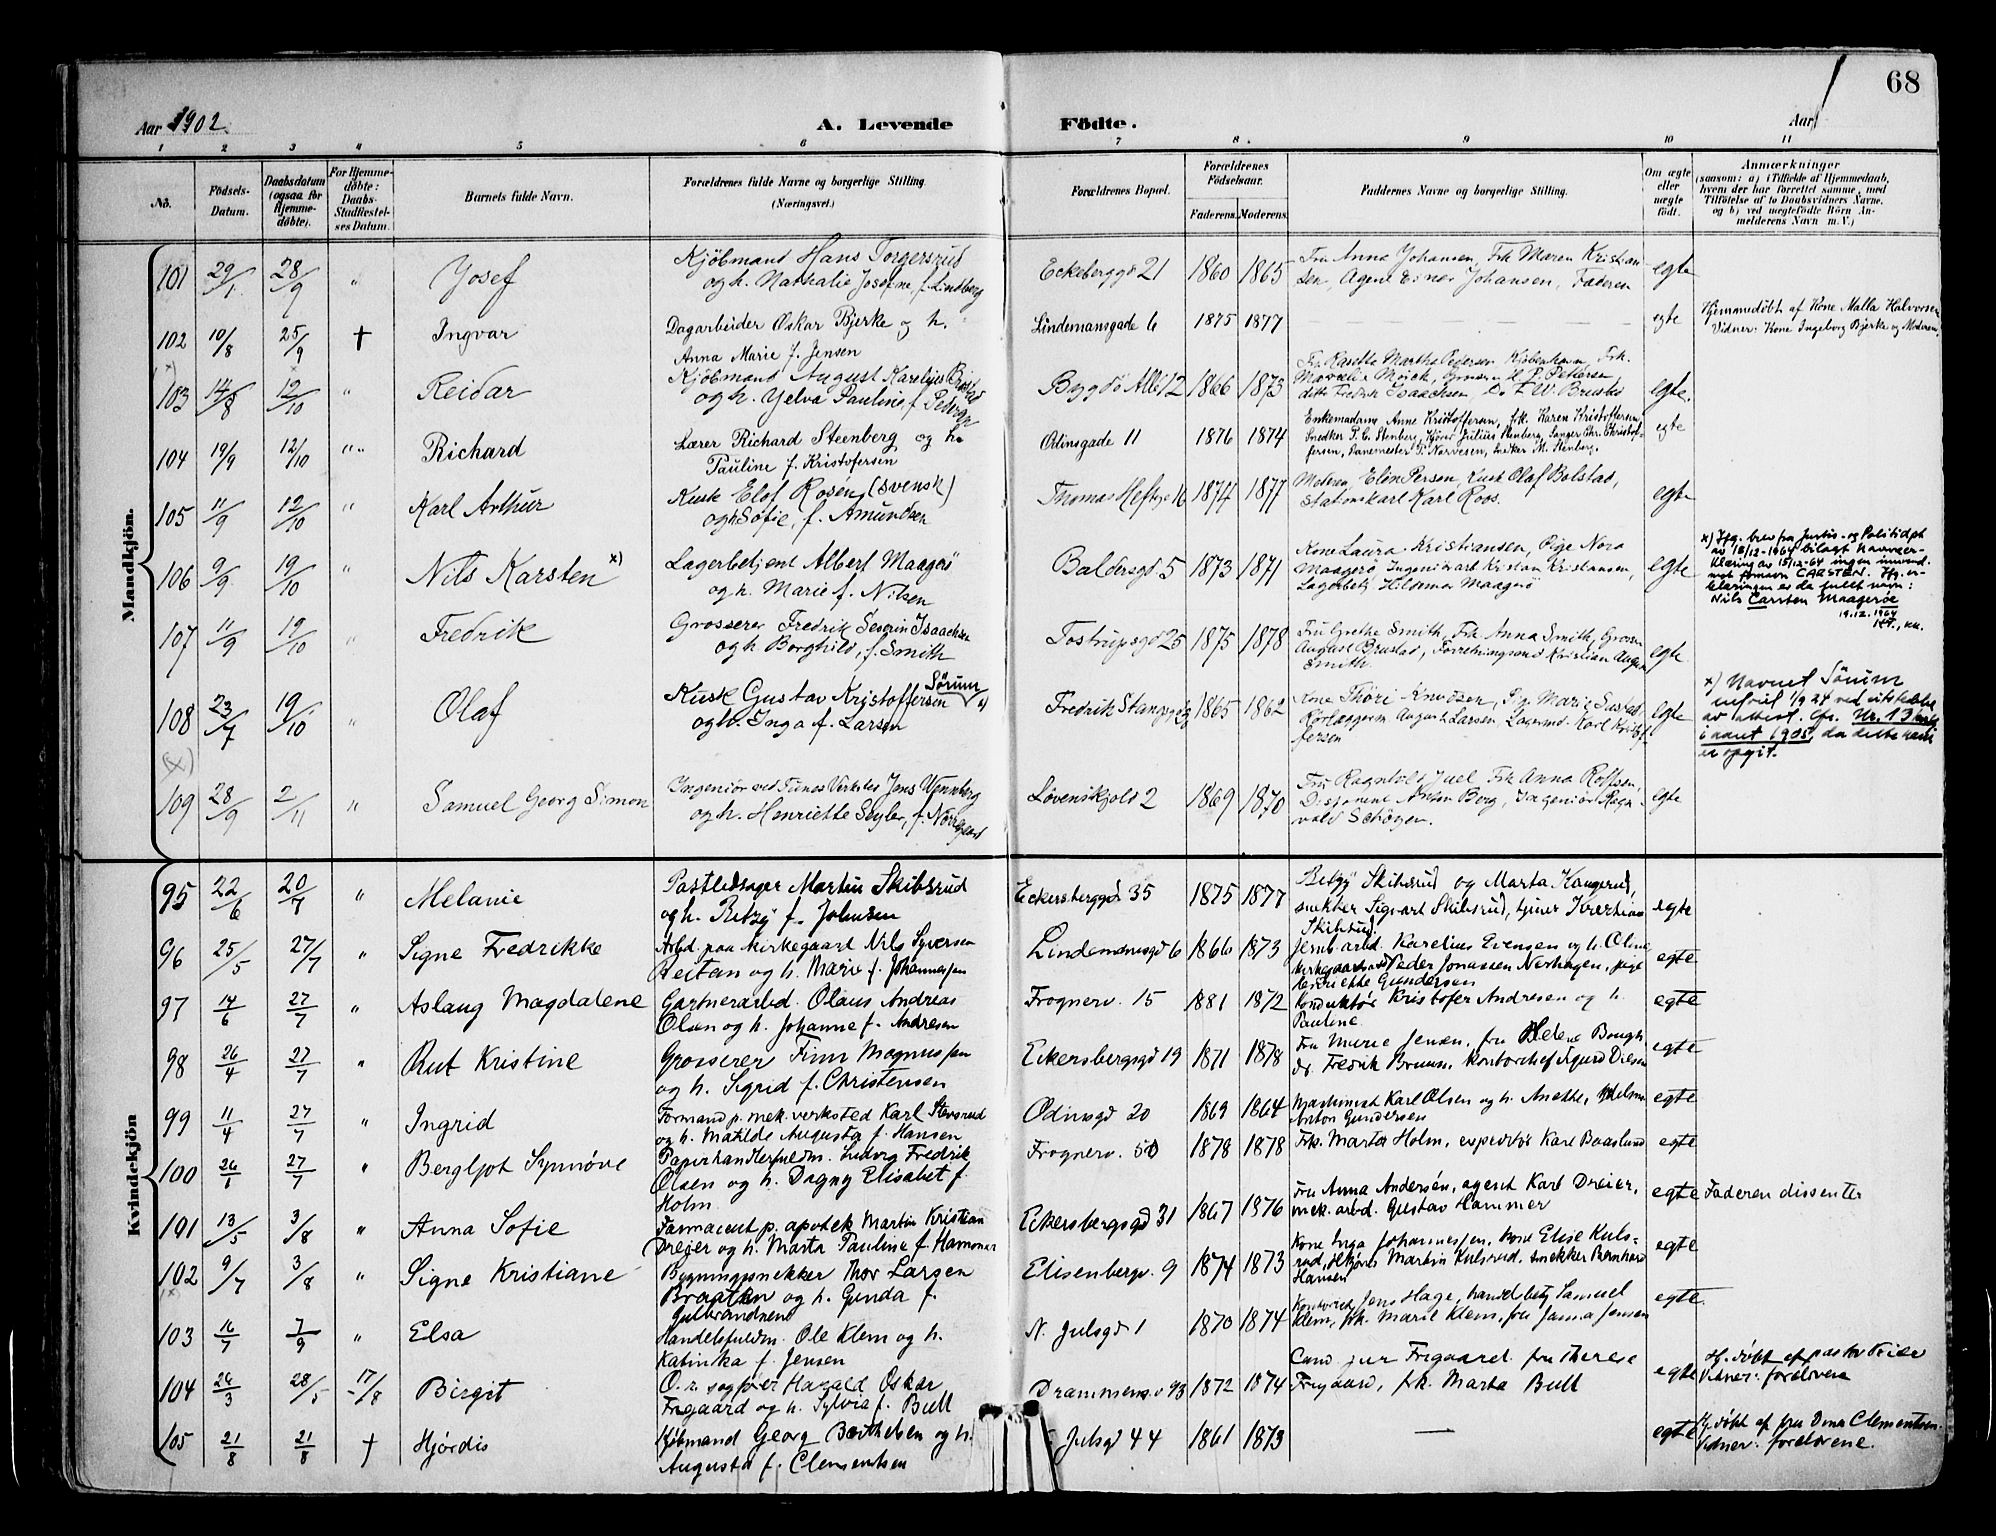 68
Aar 1902.
A. Levende Fødte.
Aar
1 2 3 " 5 6 7 8. 9 10 11
No. Fødsels-Datum. Daabsdatum (ogsaa for Hjemme-døbte). For Hjemme-døbte: Daabs-Stadfæstel-ses Datum. Barnets fulde Navn. Forældrenes fulde Navne og borgerlige Stilling. (Næringsvei.) Forældrenes Bopæl. Forældrenes Fødselsaar. Faderens. Moderens. Faddernes Navne og borgerlige Stilling. Om ægte eller uægte født. Anmærkninger (saasom: a) i Tilfælde af Hjemmedaab, hvem der har forrettet samme, med Tilføielse af to Daabsvidners Navne. og b) ved uægtefødte Børn An-melderens Navn m. V.)
Mandkjön.
101 29/1 28/9 " Josef Kjöbmand Hans Torgersrud
og h. Nathalie Josefine f. Lindberg Eckeberggd 21 1860 1865 Fru Anna Johansen, Frk Maren Kristian
sen, Agent Einar Johansen, Faderen egte
102 10/8 25/9 † Ingvar Dagarbeider Oskar Bjerke og h.
Anna Marie f. Jensen Lindemansgade 6 1875 1877 — egte Hjemmedöbt af Kone Malla Halvorsen
Vidner: Kone Ingeborg Bjerke og Moderen.
103 14/8 12/10 " Reidar Kjöbmand August Karelius Brustad
og h. Yelva Pauline f. Pedersen Bygdö Allé 12 1866 1873 Fru Kasette Martha Pedersen Kjöbenhavn, Frk.
P. Pettersen,
ditto Fredrik Isaachsen, Do F. W. Brustad egte.
104 19/9 12/10 " Richard Lærer Richard Steenberg og h.
Pauline f. Kristofersen Odinsgade 11 1876 1874 Enkemadame Anne Kristoffersen, Frk. Karen Kristoffersen,
Snedker P. C. Stenberg, Julius Stenberg, Sanger Chr. Christof-
fersen, Banemester P. Narvesen, Snedker M. Stenberg. egte
105 11/9 12/10 " Karl Arthur Kusk Elof Rosén, (svensk)
og h Sofie, f. Amundsen Thomas Heftyegd 16 1874 1877 Moderen, Elin Persen, Kusk Olaf Bolstad,
Stationskarl Karl Roos. egte
106 9/9 19/10 " Nils Karsten x) Lagerbetjent Albert Maagerö
og h. Marie f. Nilsen Baldersgd 5 1873 1871 Kone Laura Kristiansen, Pige Nora
Maagerö Ingeniörass Kristian Kristiansen,
Lagerbetj Hildemar Maagerö egte x) Ifg. brev fra Justis- og Politidpt
av 18/12-1964 bilagt navneer-
klæring av 15/12-64 ingen innvend.
mot fornavn CARSTEN. Ifg. er-
klæringen er da fullt navn:
Nils Carsten Maagerøe
19.12.1964
107 11/9 19/10 " Fredrik Grosserer Fredrik Severin Isaachsen
og h Borghild, f. Smith Tostrupsgd 25 1875 1878 Fru Grethe Smith, Frk. Anna Smith, Grosser
August Brustad, Forretningsmd Kristian August
Smith egte
108 23/7 19/10 " Olaf Kusk Gustav Kristoffersen Sörum x)
og h. Inga f. Larsen Fredrik Stangsgd 1865 1862 Kone Thöri Knudsen, Pig. Marie
August Larsen, Lagermd. Karl Kristof-
fersen egte x) Navnet Sörum
tilfoiet 1/9 24 ved utstedelse
av attest. Cfr. Nr. 13
i aaret 1905, da dette navn
er opgit.
(x)
109 28/9 2/11 " Samuel Georg Simon Ingeniör ved Tunes Verksted Jens Wennberg
og h. Henriette Seyler, f. Norregaard Lövenskjolds 2 1869 1870 Fru Ragnhild Juel, Frk Anna Rolfsen,
Disponent Anton Berg, Ingeniör Ragn-
vald Schögen. egte
Kvindekjön
95 22/6 20/7 " Melanie Postledsager Martin Skibsrud
og h. Betzy f. Johnsen Eckersberggd 35 1875 1877 Betzy Skibsrud og Marta Haugerud,
snekker Sigvart Skibsrud, tjener Kristian
Skibsrud egte
96 25/5 27/7 " Signe Fredrikke Arbd. paa kirkegaard Nils Syversen
Reitan og h. Marie f. Johannessen Lindemansgd 6 1866 1873 Jernb. arbd. Karelius Evensen og h. Oline,
kirkegaardsarbd Peder Jonassen Nerhagen, pige
Henriette Gundersen egte
97 14/6 27/7 " Aslaug Magdalene Gartnerarbd. Olaus Andreas
Olsen og h. Johanne f. Andresen Frognerv. 15 1881 1872 Konduktör Kristofer Andresen og h.
Pauline egte
98 26/4 27/7 " Rut Kristine Grosserer Finn Magnussen
og h. Sigrid f. Christensen Eckersbergsgd 19 1871 1878 Fru Marie Jensen, fru Helene Bough,
dr. Fredrik Bruun, kontorchef Sigurd egte
99 11/4 27/7 " Ingrid Formand p. mek. verksted Karl Stersrud
og h. Matilde Augusta f. Hansen Odinsgd 20 1869 1864 Maskinist Karl Olsen og h. Anette,
Anton Gundersen egte
100 26/1 27/7 " Bergljot Synnöve Papirhandlerfuldm. Ludvig Fredrik
Olsen og h. Dagny Elisabet f.
Holm Frognerv. 50 1878 1878 Frk. Marta Holm, expeditör Karl Baaslund egte
101 13/5 3/8 " Anna Sofie Farmaceut p. apotek Martin Kristian
Dreier og h. Marta Pauline f. Hammer Eckersbergsgd 31 1867 1876 Fru Anna Andersén, agent Karl Dreier,
mek. arbd. Gustav Hammer egte Faderen dissenter
102 9/7 3/8 " Signe Kristiane Bygningssnekker Thor Larsen
Braaten og h. Gunda f.
Gulbrandsen Elisenbergv. 9 1874 1873 Kone Inga Johannessen, kone Elise Kuls-
rud, Martin Kulsrud, snekker Bernhard
Hansen egte
103 16/7 7/9 " Elsa Handelsfuldm. Ole Klem og h.
Katinka f. Jensen N. Julsgd 1 1870 1874 Kontorist Jens Hage, handelsbetj Samuel
Klem, frk. Marie Klem, fru Janna Jensen egte.
104 26/3 28/5 17/8 Birgit O.r. sagförer Harald Oskar
Frigaard og h. Sylvia f. Bull Drammensv 93 1872 1874 Cand jur Frigaard fru Therese
Frigaard, frk. Marta Bull egte Hj. döbt af pastor
Vidner: foreldrene
105 21/8 21/8 † Hjördis Kjöbmand Georg Berthelsen og h.
Augusta f. Clementsen Julsgd 44 1861 1873 — egte Hj. döbt af fru Clementsen.
Vidner: foreldrene.